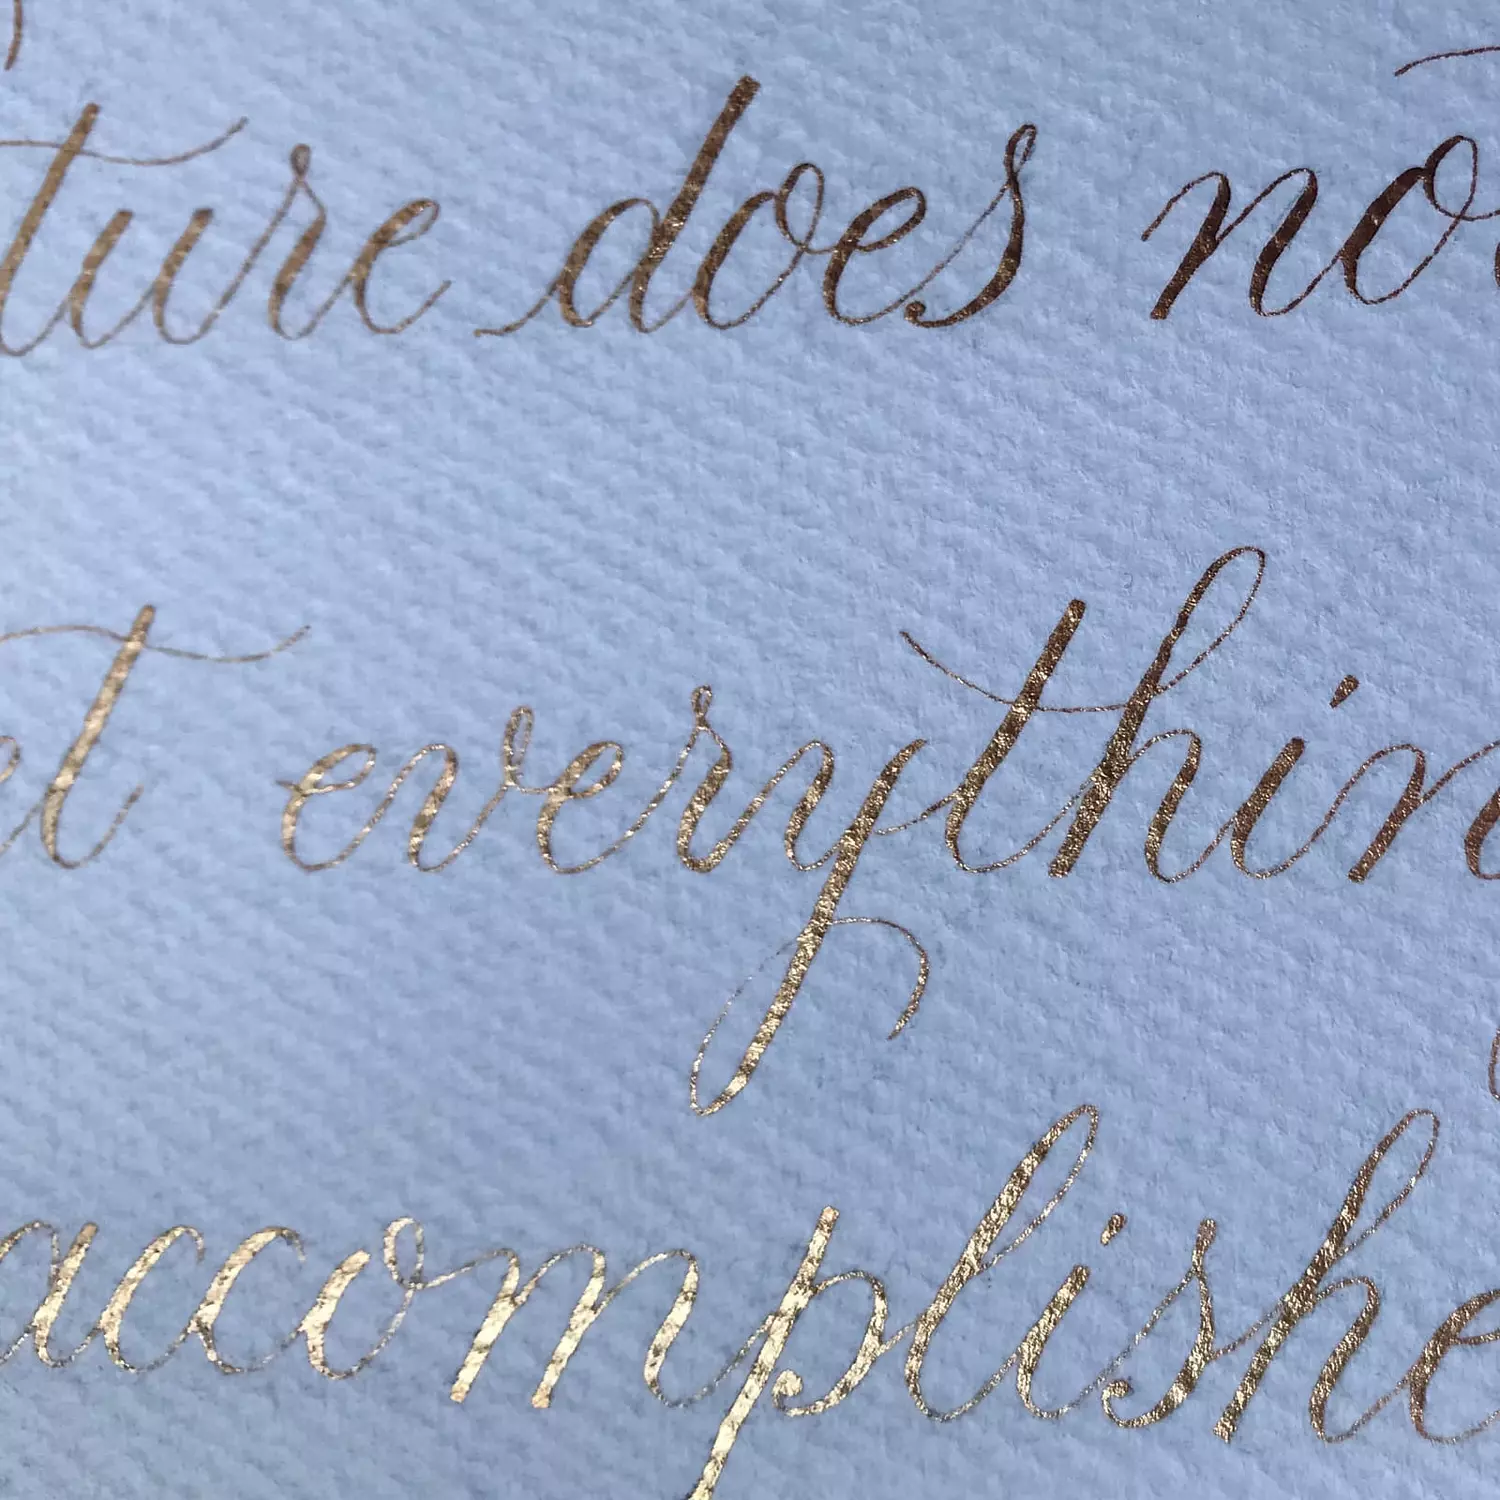 ture does no
et everythin
accomplishe